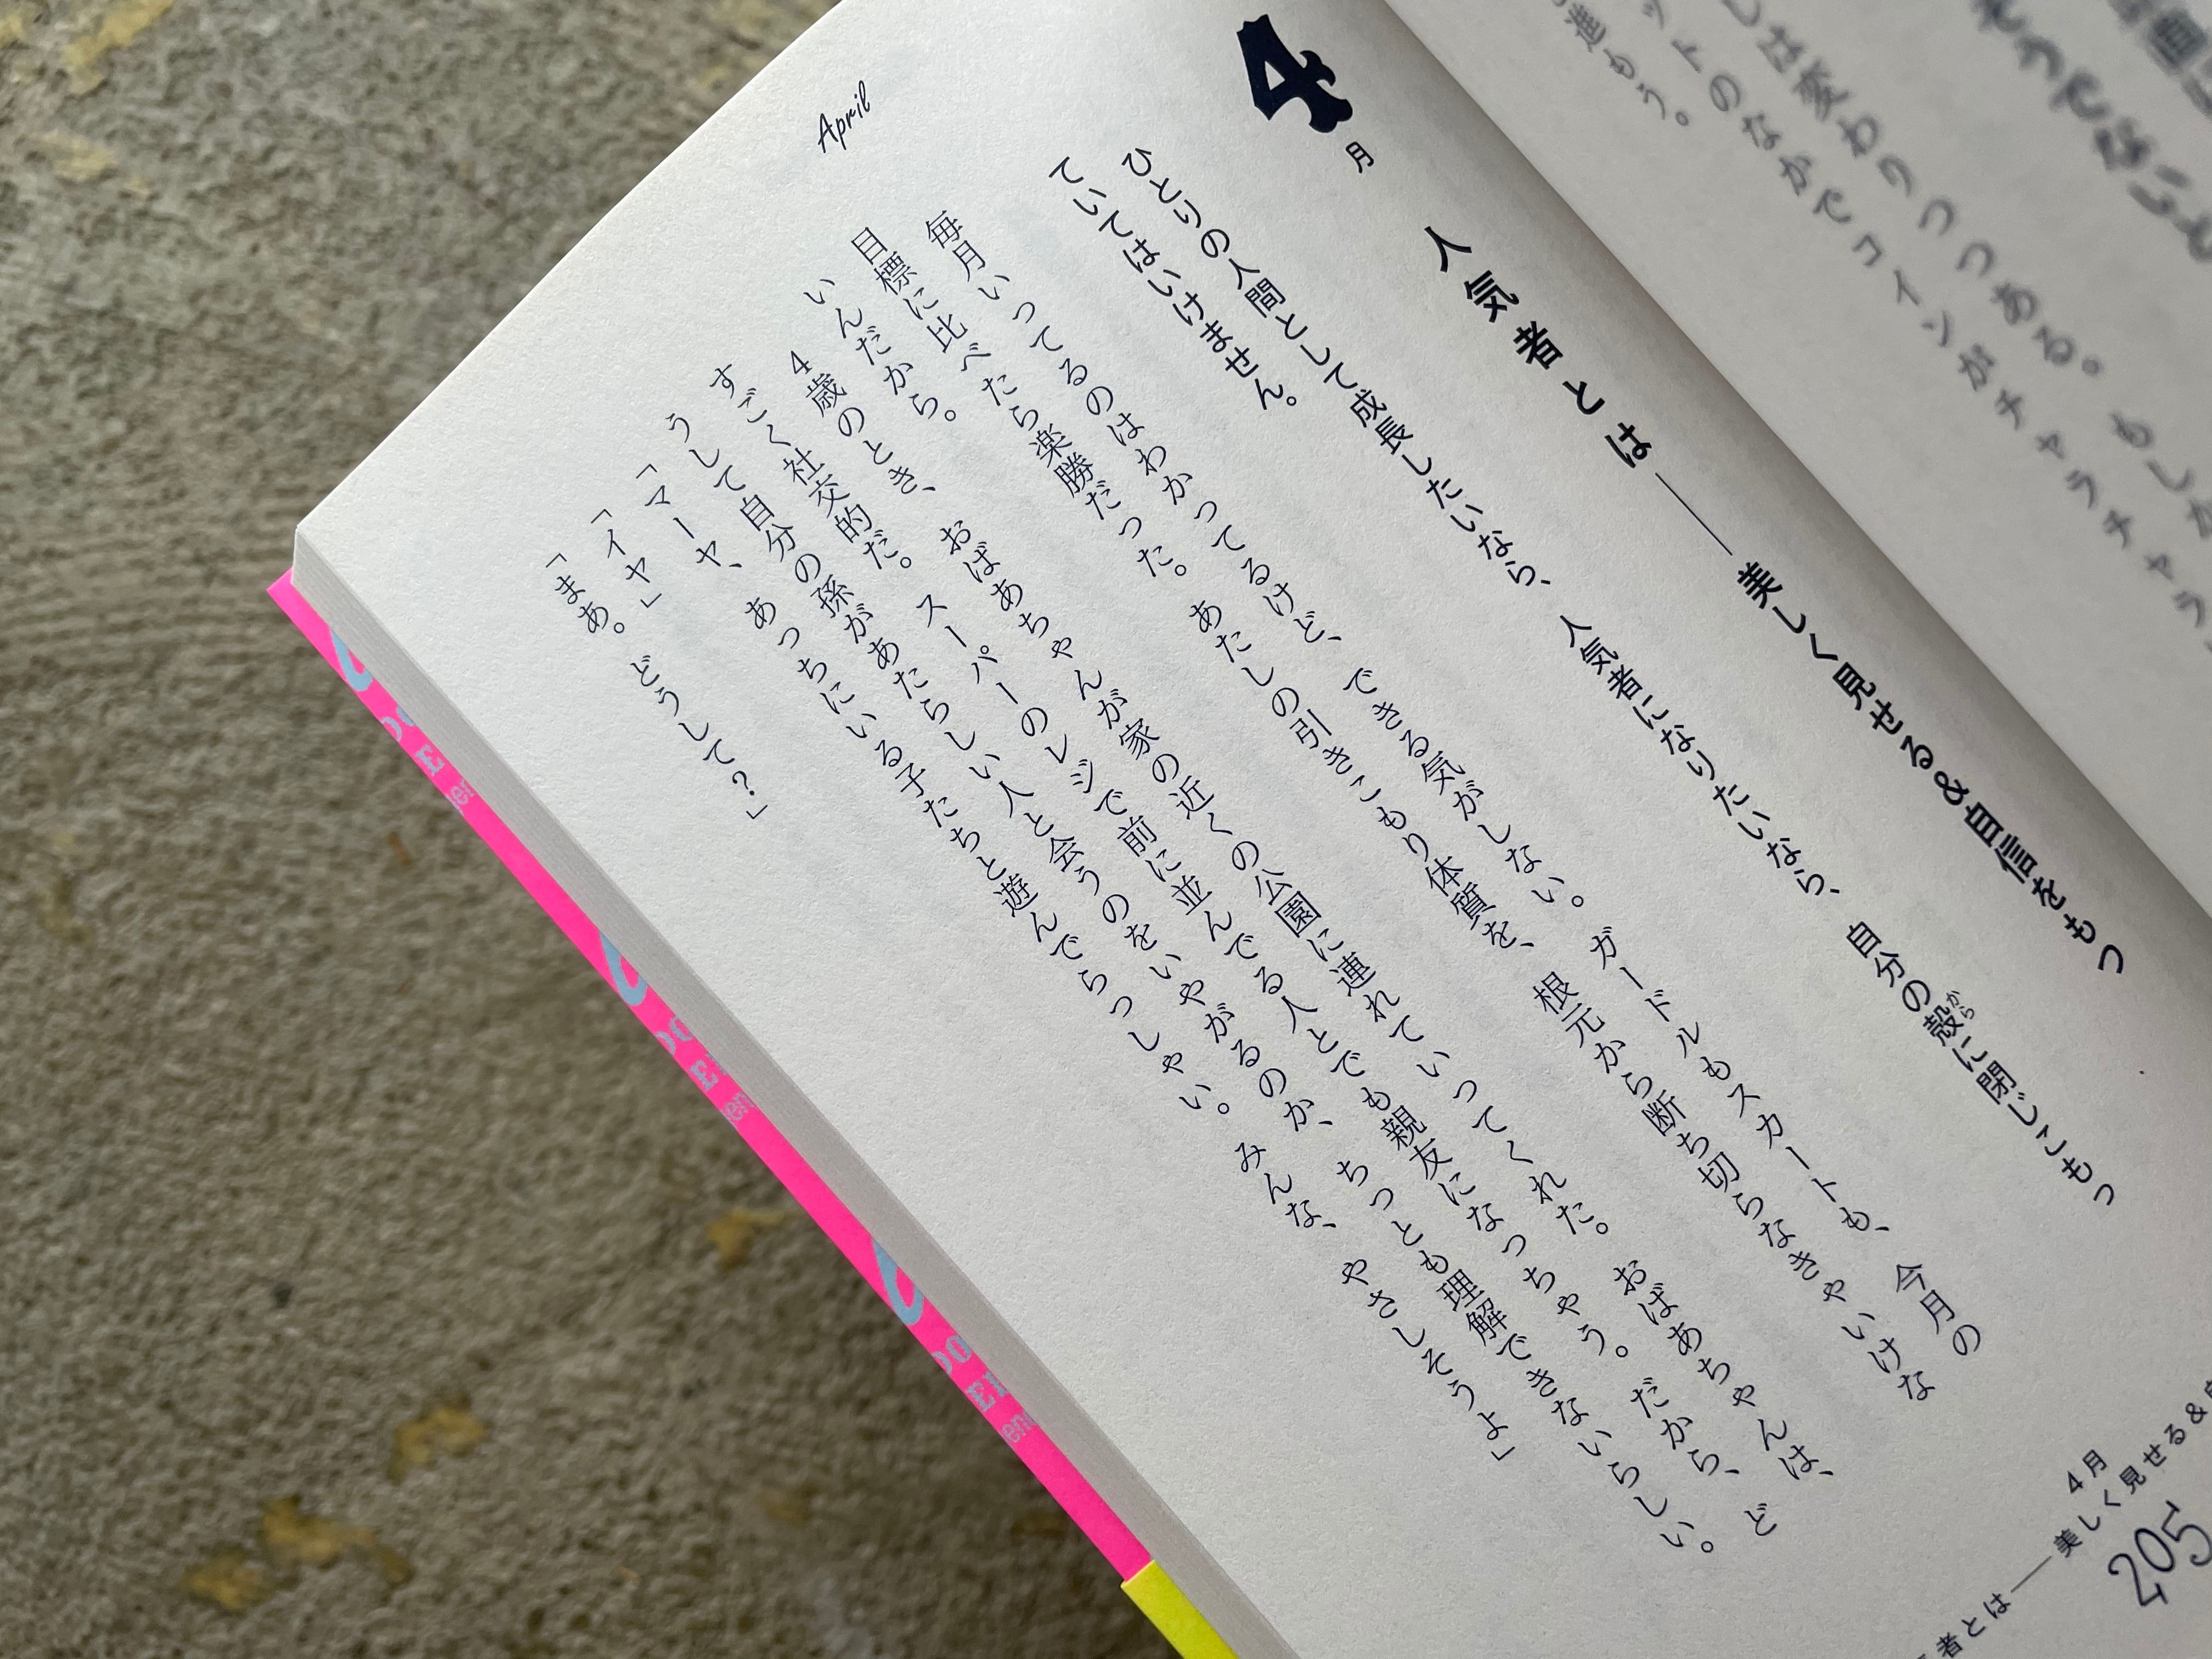 そうでないと
しは変わりつつある。もしか
ットのなかでコインがチャラチャラ
進もう。
4月
人気者とは──美しく見せる&自信をもつ
ひとりの人間として成長したいなら、人気者になりたいなら、自分の殻(から)に閉じこもっ
ていてはいけません。
毎月いってるのはわかってるけど、できる気がしない。ガードルもスカートも、今月の
目標に比べたら楽勝だった。あたしの引きこもり体質を、根元から断ち切らなきゃいけな
いんだから。
4歳のとき、おばあちゃんが家の近くの公園に連れていってくれた。おばあちゃんは、
すごく社交的だ。スーパーのレジで前に並んでる人とでも親友になっちゃう。だから、ど
うして自分の孫があたらしい人と会うのをいやがるのか、ちっとも理解できないらしい。
「マーヤ、あっちにいる子たちと遊んでらっしゃい。みんな、やさしそうよ」
「イヤ」
「まあ。どうして?」
April
4月
者とは──美しく見せる&
205